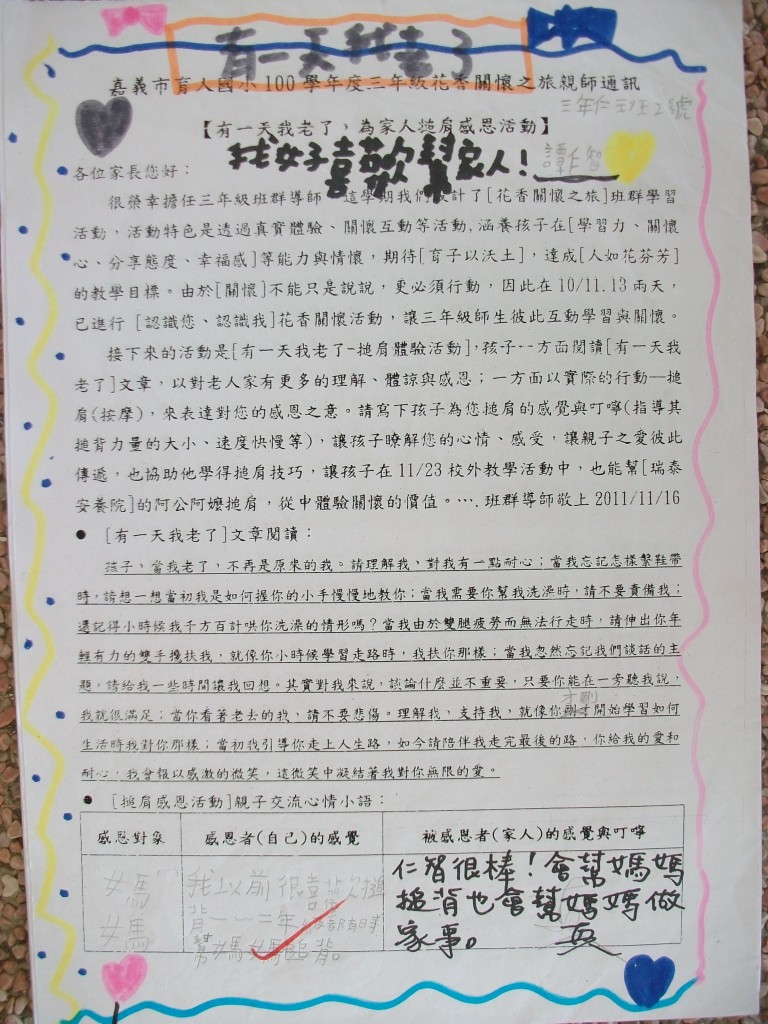 有一天我老了
嘉義市育人國小100學年度三年級花香關懷之旅親師通訊
三年仁班2號
【有一天我老了，為家人搥肩感恩活動】
我好喜歡幫家人！
譚仁智
各位家長您好：
很榮幸擔任三年級班群導師，這學期我們設計了[花香關懷之旅]班群學習
活動，活動特色是透過真實體驗、關懷互動等活動，涵養孩子在[學習力、關懷
心、分享態度、幸福感]等能力與情懷，期待[育子以沃土]，達成[人如花芬芳]
的教學目標。由於[關懷]不能只是說說，更必須行動，因此在10/11.13兩天，
已進行 [認識您、認識我]花香關懷活動，讓三年級師生彼此互動學習與關懷。
接下來的活動是[有一天我老了-搥肩體驗活動]，孩子--方面閱讀[有一天我
老了]文章，以對老人家有更多的理解、體諒與感恩；一方面以實際的行動—搥
肩(按摩)，來表達對您的感恩之意。請寫下孩子為您搥肩的感覺與叮嚀(指導其
搥背力量的大小、速度快慢等)，讓孩子瞭解您的心情、感受，讓親子之愛彼此
傳遞，也協助他學得搥肩技巧，讓孩子在11/23校外教學活動中，也能幫[瑞泰
安養院]的阿公阿嬤搥肩，從中體驗關懷的價值。….班群導師敬上2011/11/16
● [有一天我老了]文章閱讀：
孩子，當我老了，不再是原來的我。請理解我，對我有一點耐心；當我忘記怎樣繫鞋帶
時，請想一想當初我是如何握你的小手慢慢地教你；當我需要你幫我洗澡時，請不要責備我；
還記得小時候我千方百計哄你洗澡的情形嗎？當我由於雙腿疲勞而無法行走時，請伸出你年
輕有力的雙手攙扶我，就像你小時候學習走路時，我扶你那樣；當我忽然忘記我們談話的主
題，請給我一些時間讓我回想。其實對我來說，談論什麼並不重要，只要你能在一旁聽我說，
才剛
我就很滿足；當你看著老去的我，請不要悲傷。理解我，支持我，就像你剛才開始學習如何
生活時我對你那樣；當初我引導你走上人生路，如今請陪伴我走完最後的路，你給我的愛和
耐心，我會報以感激的微笑，這微笑中凝結著我對你無限的愛。
● [搥肩感恩活動]親子交流心情小語：
感恩對象 感恩者(自己)的感覺 被感恩者(家人)的感覺與叮嚀
媽媽
我以前很喜歡搥
背一～二年級都有時
幫媽媽搥背。
仁智很棒！會幫媽媽
搥背也會幫媽媽做
家事。